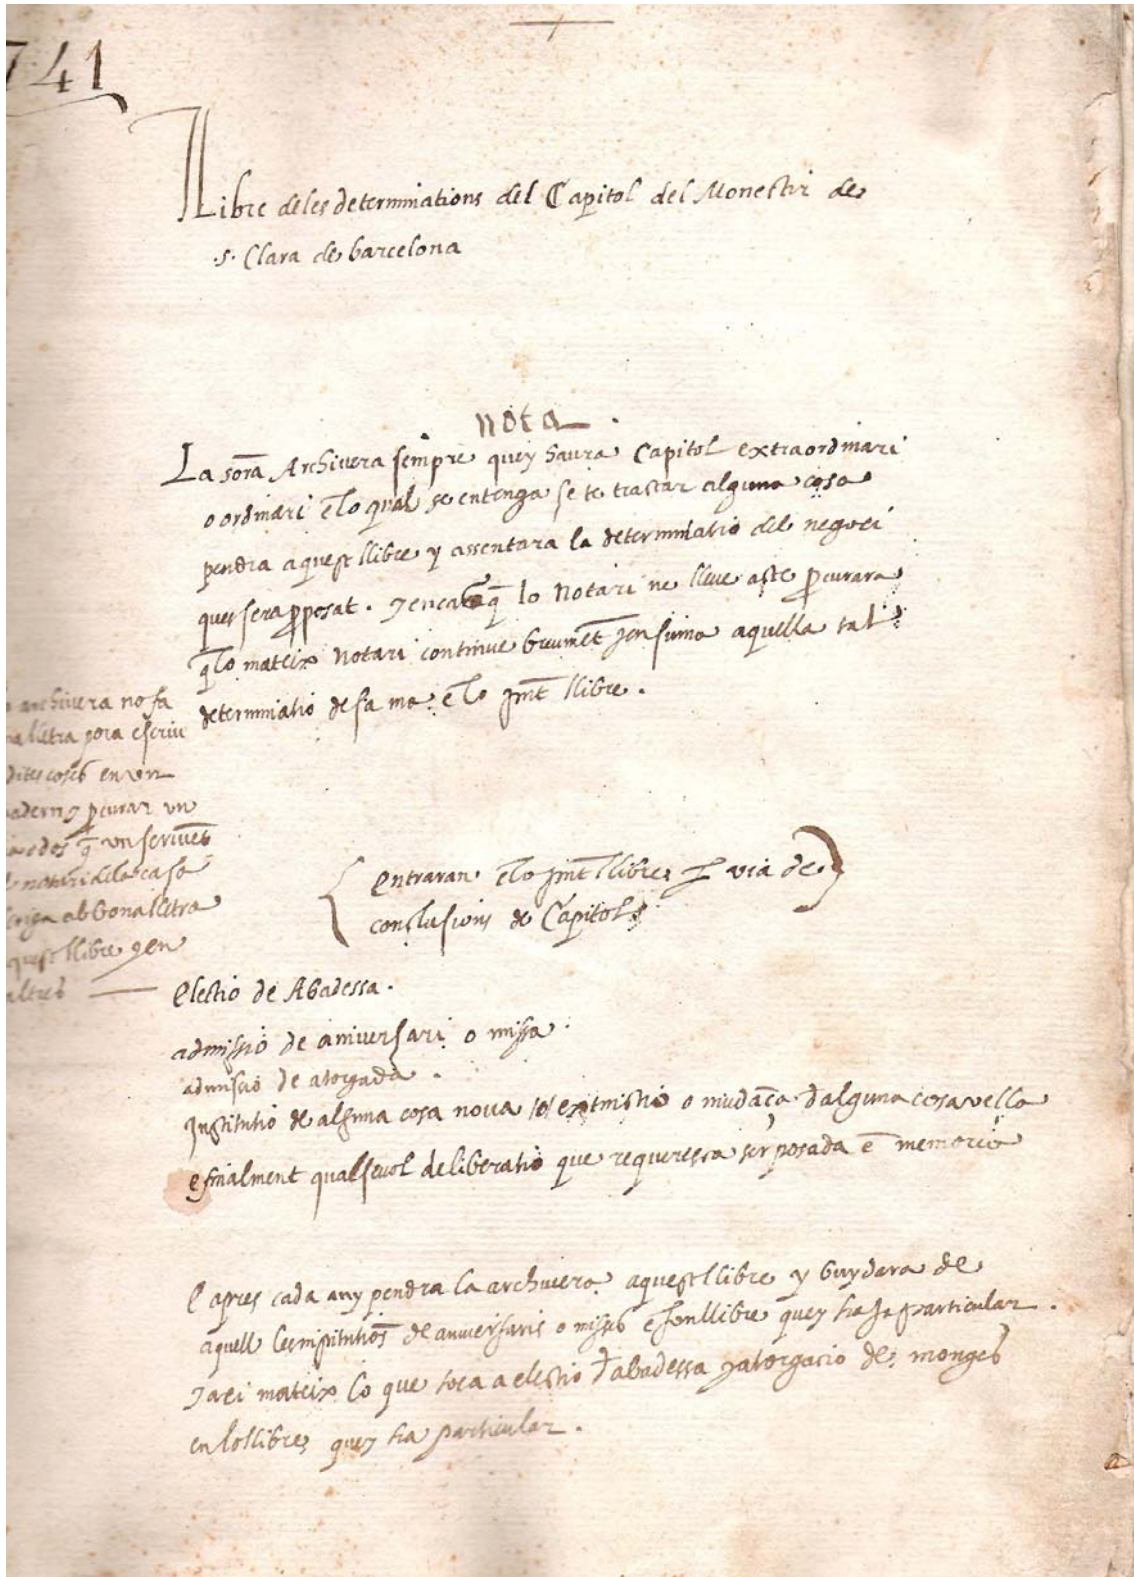 741
Llibre deles determinations del Capitol del Monestir de
.s. Clara de barcelona
nota .
La sorā Archivera sempre quey haura Capitol extraordinari
o ordinari ē lo qual se entenga se te tractar alguna cosa
pendra aquest llibre y assentara la determinatio del negoci
quey sera pposat . y encaraq̄ lo Notari ne lleve acte pcurara
q̄ lo mateix Notari continue breumēt y en suma aquella tal
determinatio de sa ma ē lo pn̄t llibre .
archivera no fa
lletra pora escriu
dites coses en un
y pcurar un
o dos q̄ un scrivent
notari dela casa
ab bona lletra
llibre y en
altres
Entraran ē lo pn̄t llibre p via de
conclusions de Capitol
Electio de Abadessa .
admissio de aniversari o missa .
admissio de atorgada .
Institutio de alguna cosa nova /o/ o mudāça dalguna cosa vella
e finalment qualsevol deliberatio que requeresca ser posada ē memoria
E apres cada any pendra la archivera aquest llibre y buydara de
aquell les institutiōs de aniversaris o misses e son llibre quey ha particular .
y axi mateix lo que toca a electio dabadessa y atorgacio de monges
en los llibres quey ha particular .